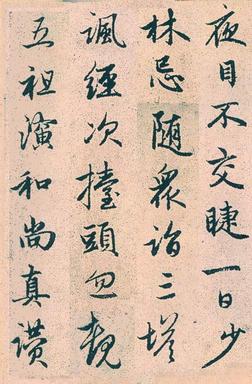 夜目不交睫一日少
林忌隨衆詣三塔
諷經次擡頭忽覩
五祖演和尚真讚